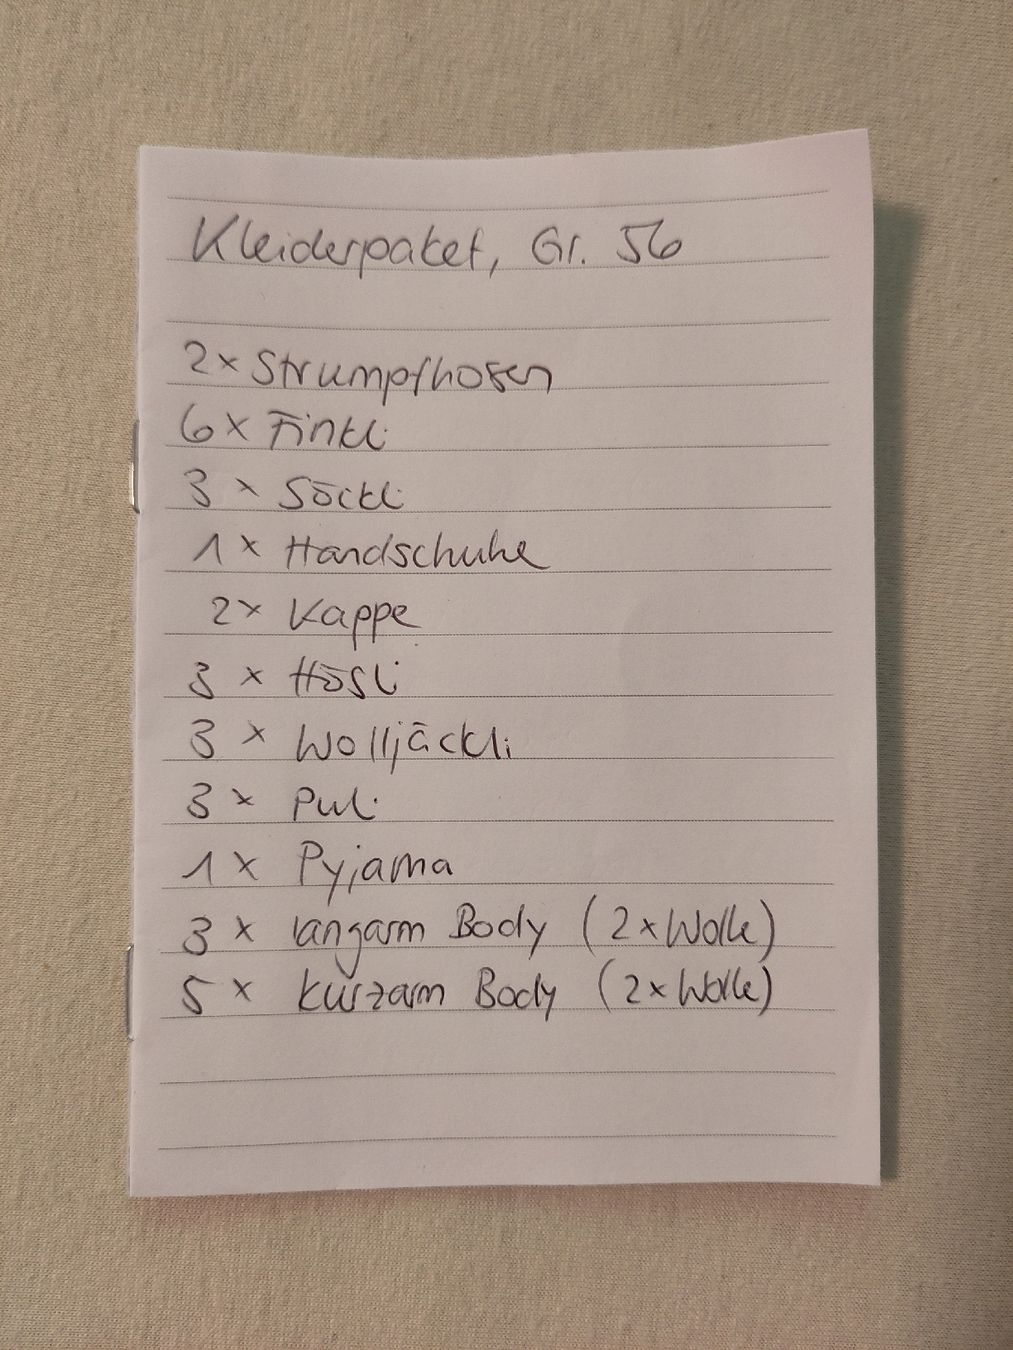 Kleiderpaket, Gr. 56
2x Strumpfhosen
6x Finkli
3 x Söckli
1x Handschuhe
2x Kappe
3 x Hösli
3 x Wolljäckli
3x Puli
1x Pyjama
3 x langarm Body (2xWolle)
5 x kurzarm Body (2xWolle)